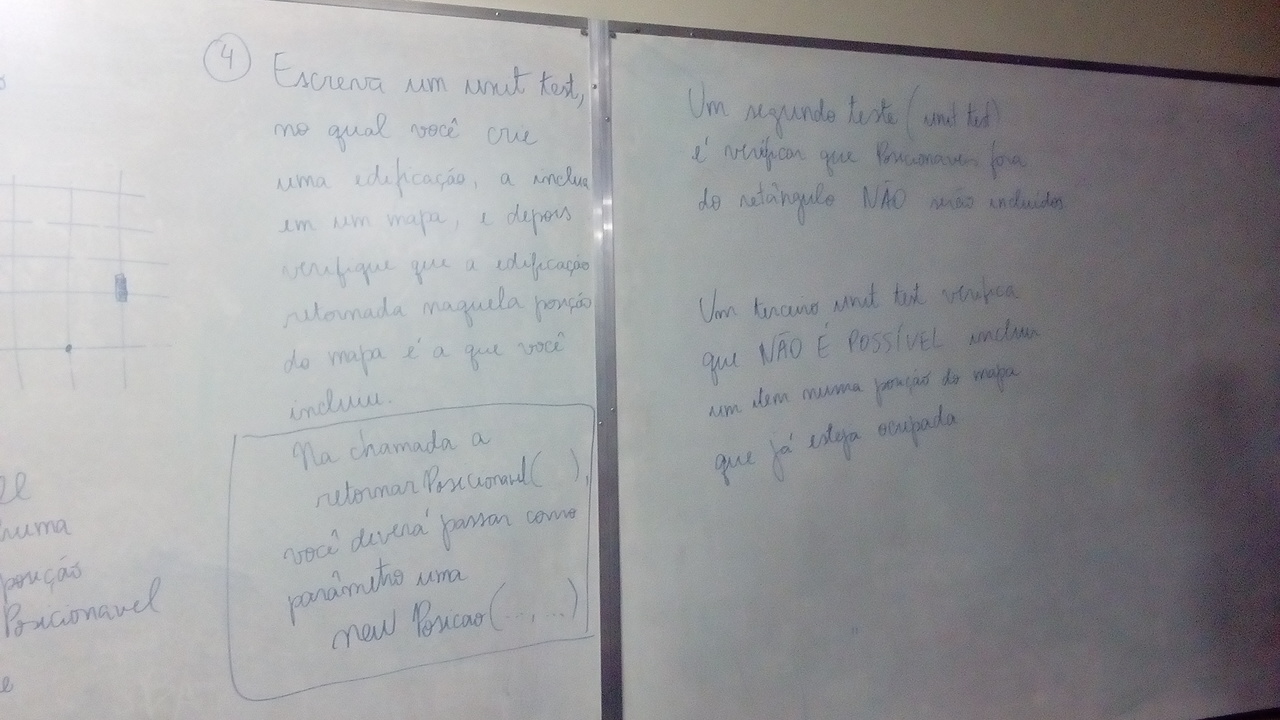 4
Escreva um unit test,
no qual você crie
uma edificação, a inclua
em um mapa, e depois
verifique que a edificação
retornada naquela posição
do mapa é a que você
incluiu.
Na chamada a
retornarPosicionavel( ),
você deverá passar como
parâmetro uma
new Posicao(..., ...)
huma
posição
Posicionavel
e
Um segundo teste (unit test)
é verificar que Posicionaveis fora
do retângulo NÃO serão incluídos
Um terceiro unit test verifica
que NÃO É POSSÍVEL incluir
um item numa posição do mapa
que já esteja ocupada